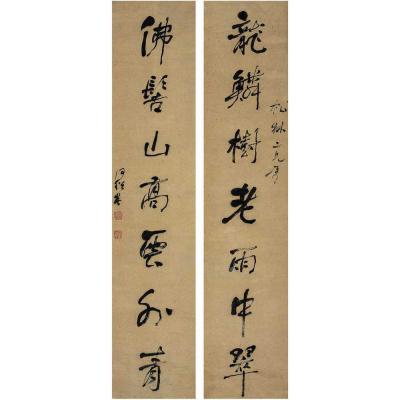 龍鱗樹老雨中翠
二兄屬
佛髻山高雲外青
何紹基